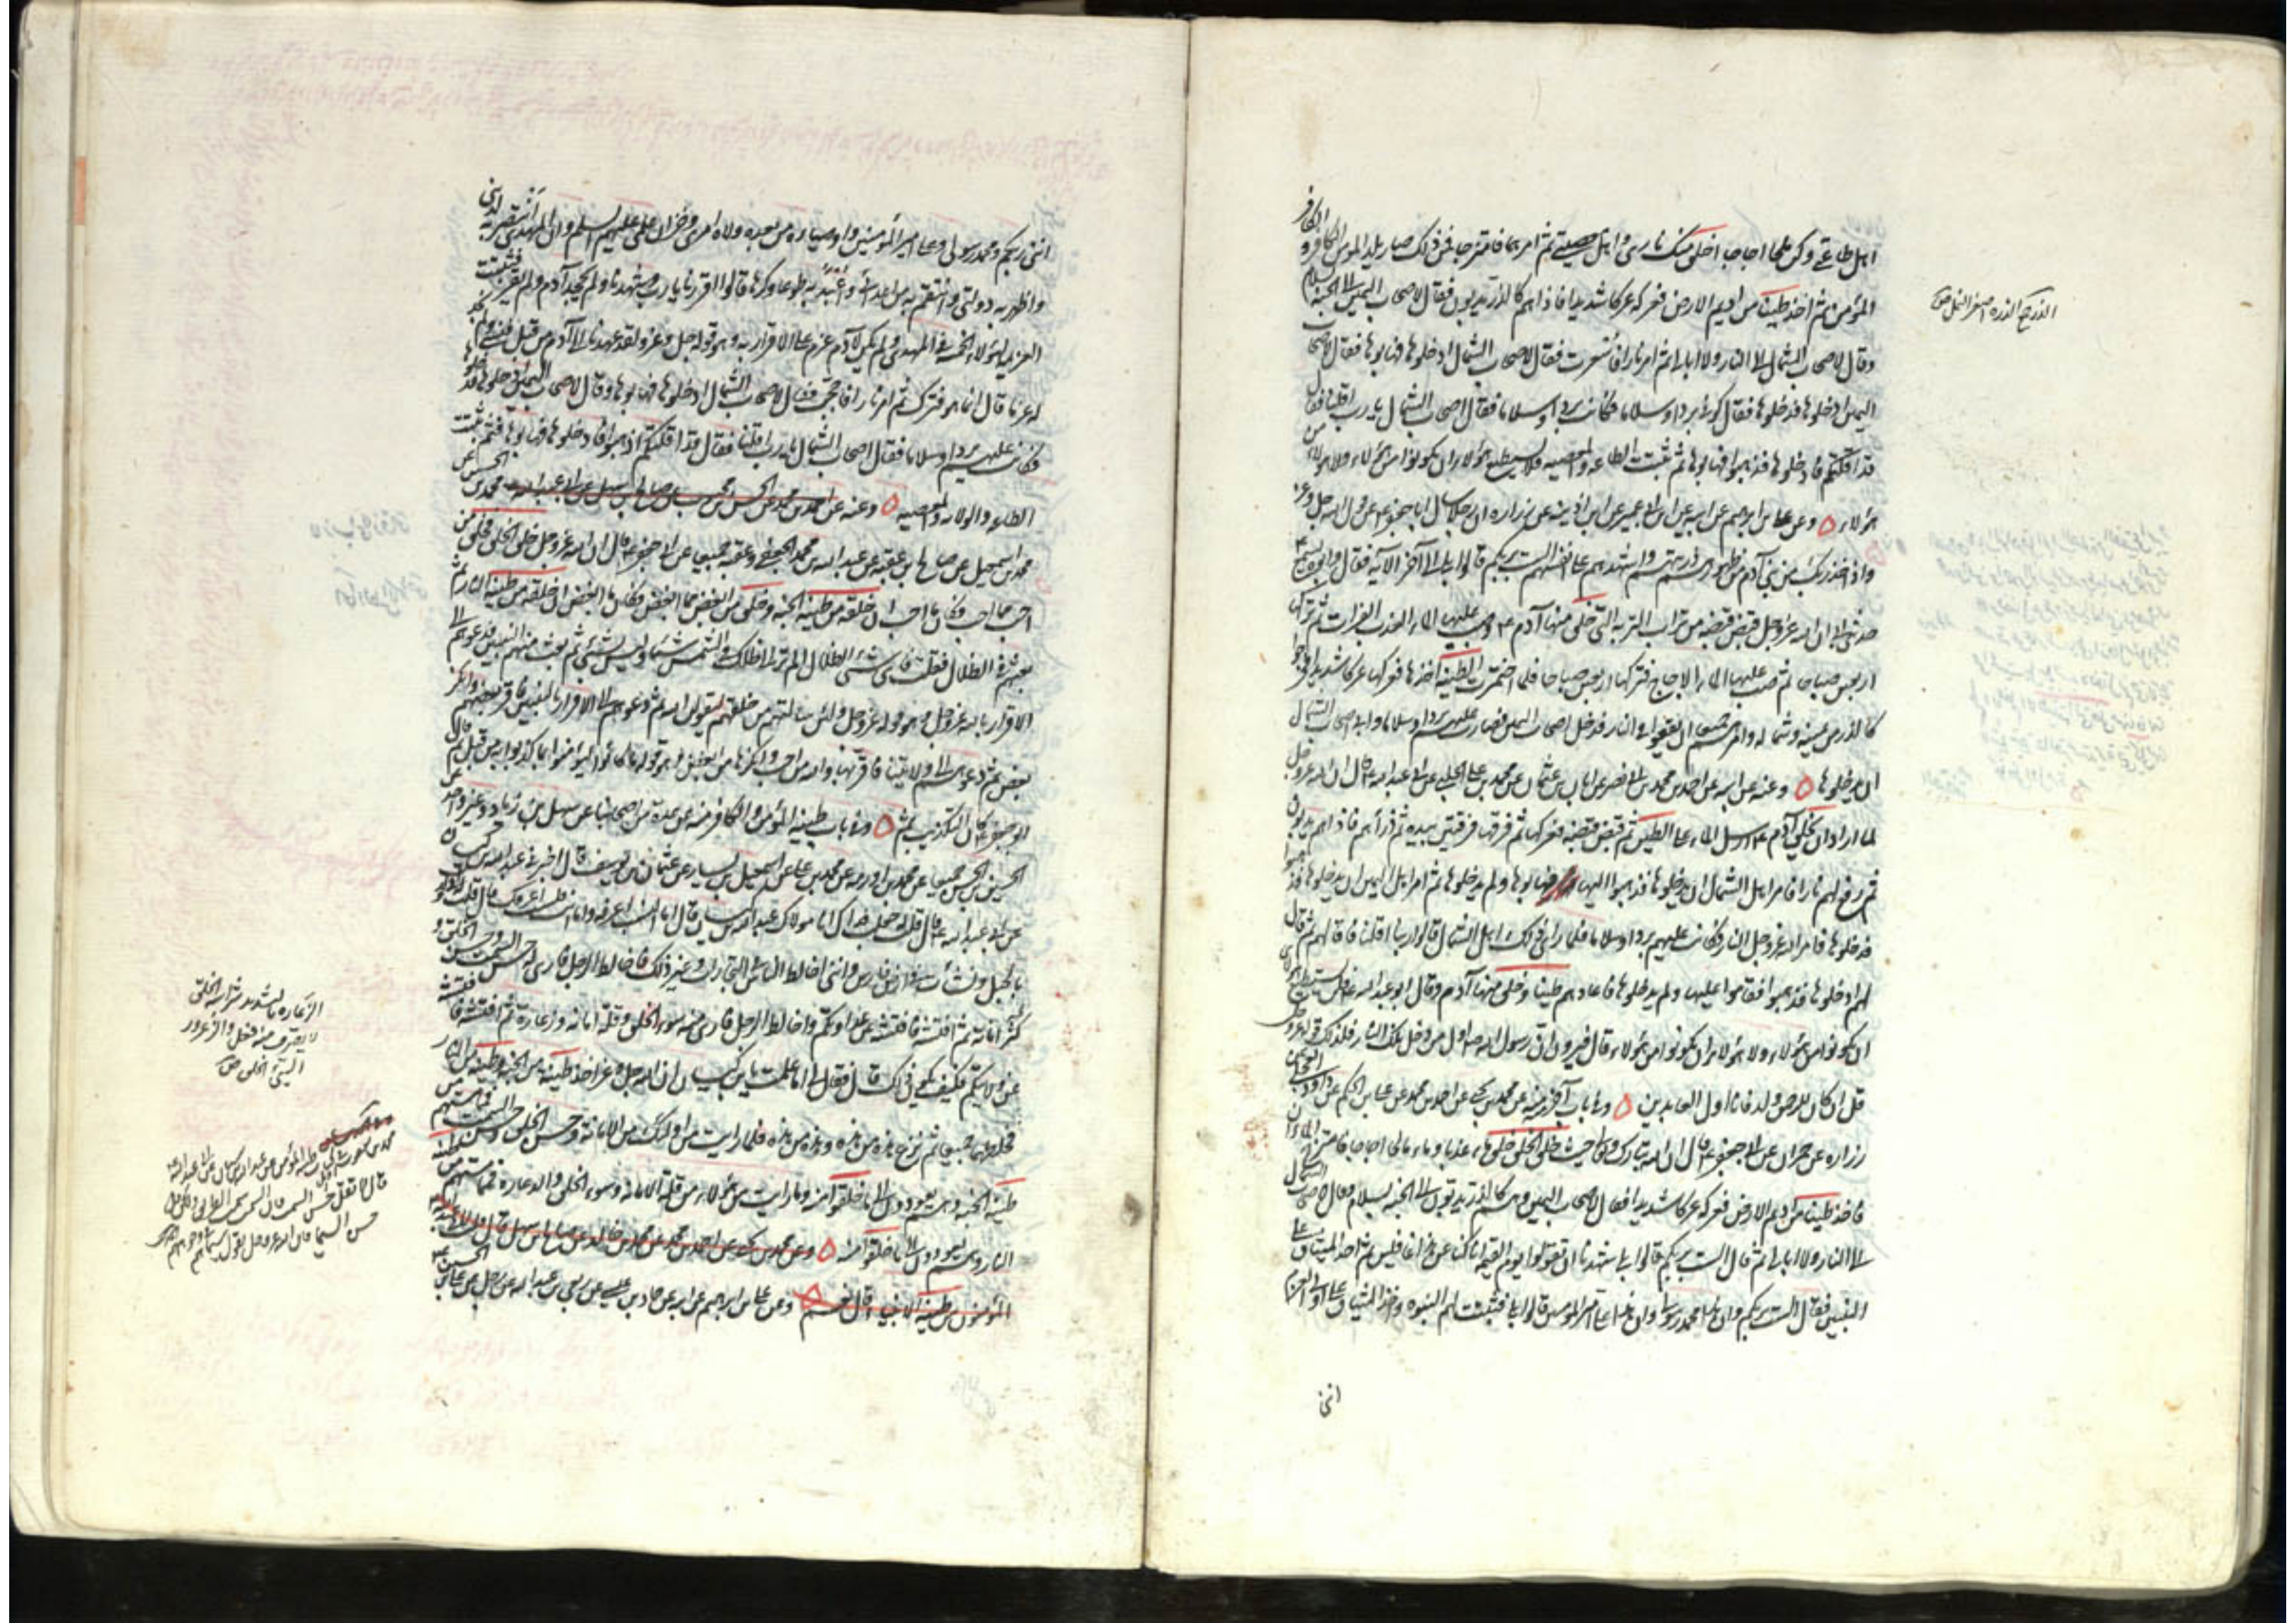 اهل طاعتي وكن ملحا اجاجا اخلق منك ناري واهل معصيتي ثم امرهما فامتزجا فمن ذلك صار يلد المومن الكافر و الكافر
المؤمن ثم اخذ طينا من اديم الارض فعركه عركا شديدا فاذا هم كالذر يدبون فقال لاصحاب اليمين الى الجنة بسلام
وقال لاصحاب الشمال الى النار ولا ابالي ثم امر نارا فاسعرت فقال لاصحاب الشمال ادخلوها فهابوها فقال لاصحاب
اليمين ادخلوها فدخلوها فقال كوني بردا وسلاما فكانت بردا وسلاما فقال اصحاب الشمال يا رب اقلنا فقال
قد اقلتكم فادخلوها فذهبوا فهابوها فثم ثبتت الطاعة والمعصية فلا يستطيع هؤلاء ان يكونوا من هؤلاء ولا هؤلاء من
هؤلاء وعن علي بن ابرهيم عن ابيه عن ابن ابي عمير عن ابن اذينه عن زراره ان رجلا سال ابا جعفر ع عن قول الله جل وعز
واذ اخذ ربك من بني آدم من ظهورهم ذريتهم واشهدهم على انفسهم الست بربكم قالوا بلى الى آخر الآية فقال وابوه يسمع
حدثني ابي ان الله عز وجل قبض قبضه من تراب التربة التي خلق منها آدم ع فصب عليها الماء العذب الفرات ثم تركها
اربعين صباحا ثم صب عليها الماء المالح الاجاج فتركها اربعين صباحا فلما اختمرت الطينة اخذها فعركها عركا شديدا فخرجوا
كالذر من يمينه وشماله وامرهم جميعا ان يقعوا في النار فدخل اصحاب اليمين فصارت عليهم بردا وسلاما وابى اصحاب الشمال
ان يدخلوها وعنه عن ابيه عن احمد بن محمد بن ابي نصر عن ابان بن عثمان عن محمد بن علي الحلبي عن ابي عبد الله ع قال ان الله عز وجل
لما اراد ان يخلق آدم ع ارسل الماء على الطين ثم قبض قبضة فعركها ثم فرقها فرقتين بيده ثم ذرأهم فاذا هم يدبون
ثم رفع لهم نارا فامر اهل الشمال ان يدخلوها فذهبوا اليها فهابوها ولم يدخلوها ثم امر اهل اليمين ان يدخلوها فذهبوا
فدخلوها فامر الله عز وجل النار فكانت عليهم بردا وسلاما فلما راى ذلك اهل الشمال قالوا ربنا اقلنا فاقالهم ثم قال
لهم ادخلوها فذهبوا فقاموا عليها ولم يدخلوها فاعادهم طينا وخلق منها آدم وقال ابو عبد الله ع فلن يستطيع هؤلاء
ان يكونوا من هؤلاء ولا هؤلاء ان يكونوا من هؤلاء قال فيرون ان رسول الله ص اول من دخل تلك النار فلذلك قوله عز وجل
قل ان كان للرحمن ولد فانا اول العابدين وفي باب آخر منه عن محمد بن يحيى عن احمد بن محمد عن علي بن الحكم عن داود العجلي عن
زراره عن حمران عن ابي جعفر ع قال ان الله تبارك وتعالى حيث خلق الخلق خلق ماء عذبا وماء مالحا اجاجا فامتزج الماءان
فاخذ طينا من اديم الارض فعركه عركا شديدا فقال لاصحاب اليمين وهم كالذر يدبون الى الجنة بسلام وقال لاصحاب الشمال
الى النار ولا ابالي ثم قال الست بربكم قالوا بلى شهدنا ان تقولوا يوم القيمة انا كنا عن هذا غافلين ثم اخذ الميثاق على
النبيين فقال الست بربكم وان هذا محمد رسولي وان هذا علي امير المومنين قالوا بلى فثبتت لهم النبوة واخذ الميثاق على اولي العزم
انني
الذر جمع الذره اصغر النمل ص
انني ربكم ومحمد رسولي وعلي امير المؤمنين واوصياؤه من بعده ولاة امري وخزان علمي عليهم السلم وان المهدي انتصر به لديني
واظهر به دولتي وانتقم به من اعدائي واعبد به طوعا وكرها قالوا اقررنا يا رب وشهدنا ولم يجحد آدم ولم يقر فثبتت
العزيمة لهؤلاء الخمسة في المهدي ولم يكن لآدم عزم على الاقرار به وهو قوله جل وعز ولقد عهدنا الى آدم من قبل فنسي ولم نجد
له عزما قال انما هو فترك ثم امر نارا فاججت فقال لاصحاب الشمال ادخلوها فهابوها وقال لاصحاب اليمين ادخلوها فدخلوها
فكانت عليهم بردا وسلاما فقال اصحاب الشمال يا رب اقلنا فقال قد اقلتكم اذهبوا فادخلوها فهابوها فثم ثبتت
الطاعة والولاية والمعصية وعنه عن احمد بن محمد عن الحسن بن محبوب عن صالح بن سهل عن ابي عبد الله محمد بن الحسين عن
محمد بن اسمعيل عن صالح بن عقبه عن عبد الله بن محمد الجعفي وعقبه جميعا عن ابي جعفر ع قال ان الله عز وجل خلق الخلق فخلق من
احب مما احب وكان ما احب ان خلقه من طينة الجنة وخلق من ابغض مما ابغض وكان ما ابغض ان خلقه من طينة النار ثم
بعثهم في الظلال فقلت واي شيء الظلال الم تر الى ظلك في الشمس شيئا وليس بشيء ثم بعث منهم النبيين فدعوهم الى
الاقرار بالله عز وجل وهو قوله عز وجل ولئن سالتهم من خلقهم ليقولن الله ثم دعوهم الى الاقرار بالنبيين فاقر بعضهم وانكر
بعض ثم دعوهم الى ولايتنا فاقر بها والله من احب وانكرها من ابغض وهو قوله ما كانوا ليؤمنوا بما كذبوا به من قبل ثم قال
ابو جعفر ع كان التكذيب ثم وفي باب طينة المؤمن والكافر منه عن عدة من اصحابنا عن سهل بن زياد وغير واحد عن
الحسين بن الحسن جميعا عن محمد بن اورمه عن محمد بن علي عن اسمعيل بن يسار عن عثمان بن يوسف قال اخبرني عبد الله بن كيسان
عن ابي عبد الله ع قال قلت له جعلت فداك انا مولاك عبد الله بن كيسان قال اما النسب فاعرفه واما انت فلست اعرفك قال قلت له اني ولدت
بالجبل ونشأت في ارض فارس وانني اخالط الناس في التجارات وغير ذلك فاخالط الرجل فارى له حسن السمت وحسن الخلق و
كثرة امانة ثم افتشه فافتشه عن عداوتكم واخالط الرجل فارى منه سوء الخلق وقلة امانة وزعارة ثم افتشه فافتشه
عن ولايتكم فكيف يكون ذلك قال فقال لي اما علمت يا ابن كيسان ان الله جل وعز اخذ طينة من الجنة وطينة من النار
فخلطهما جميعا ثم نزع هذه من هذه وهذه من هذه فلما رايت من اولئك من الامانة وحسن الخلق وحسن السمت فمما مستهم من
طينة الجنة وهم يعودون الى ما خلقوا منه وما رايت من هؤلاء من قلة الامانة وسوء الخلق والدعارة فمما مستهم من طينة
النار وهم يعودون الى ما خلقوا منه وعن محمد بن يحيى عن احمد بن محمد عن محمد بن خالد عن صالح بن سهل قال قلت لابي عبد الله ع
المؤمنون من طينة الانبياء قال نعم وعن علي بن ابرهيم عن ابيه عن حماد بن عيسى عن ربعي بن عبد الله عن رجل عن علي بن الحسين ع
الزعارة بالتشديد شراسة الخلق
لا يصرف منه فعل والزعرور
السيئ الخلق ص
قال لا تقل حسن السمت فان السمت سمت الطريق ولكن قل
حسن السيما فان الله عز وجل يقول سيماهم في وجوههم